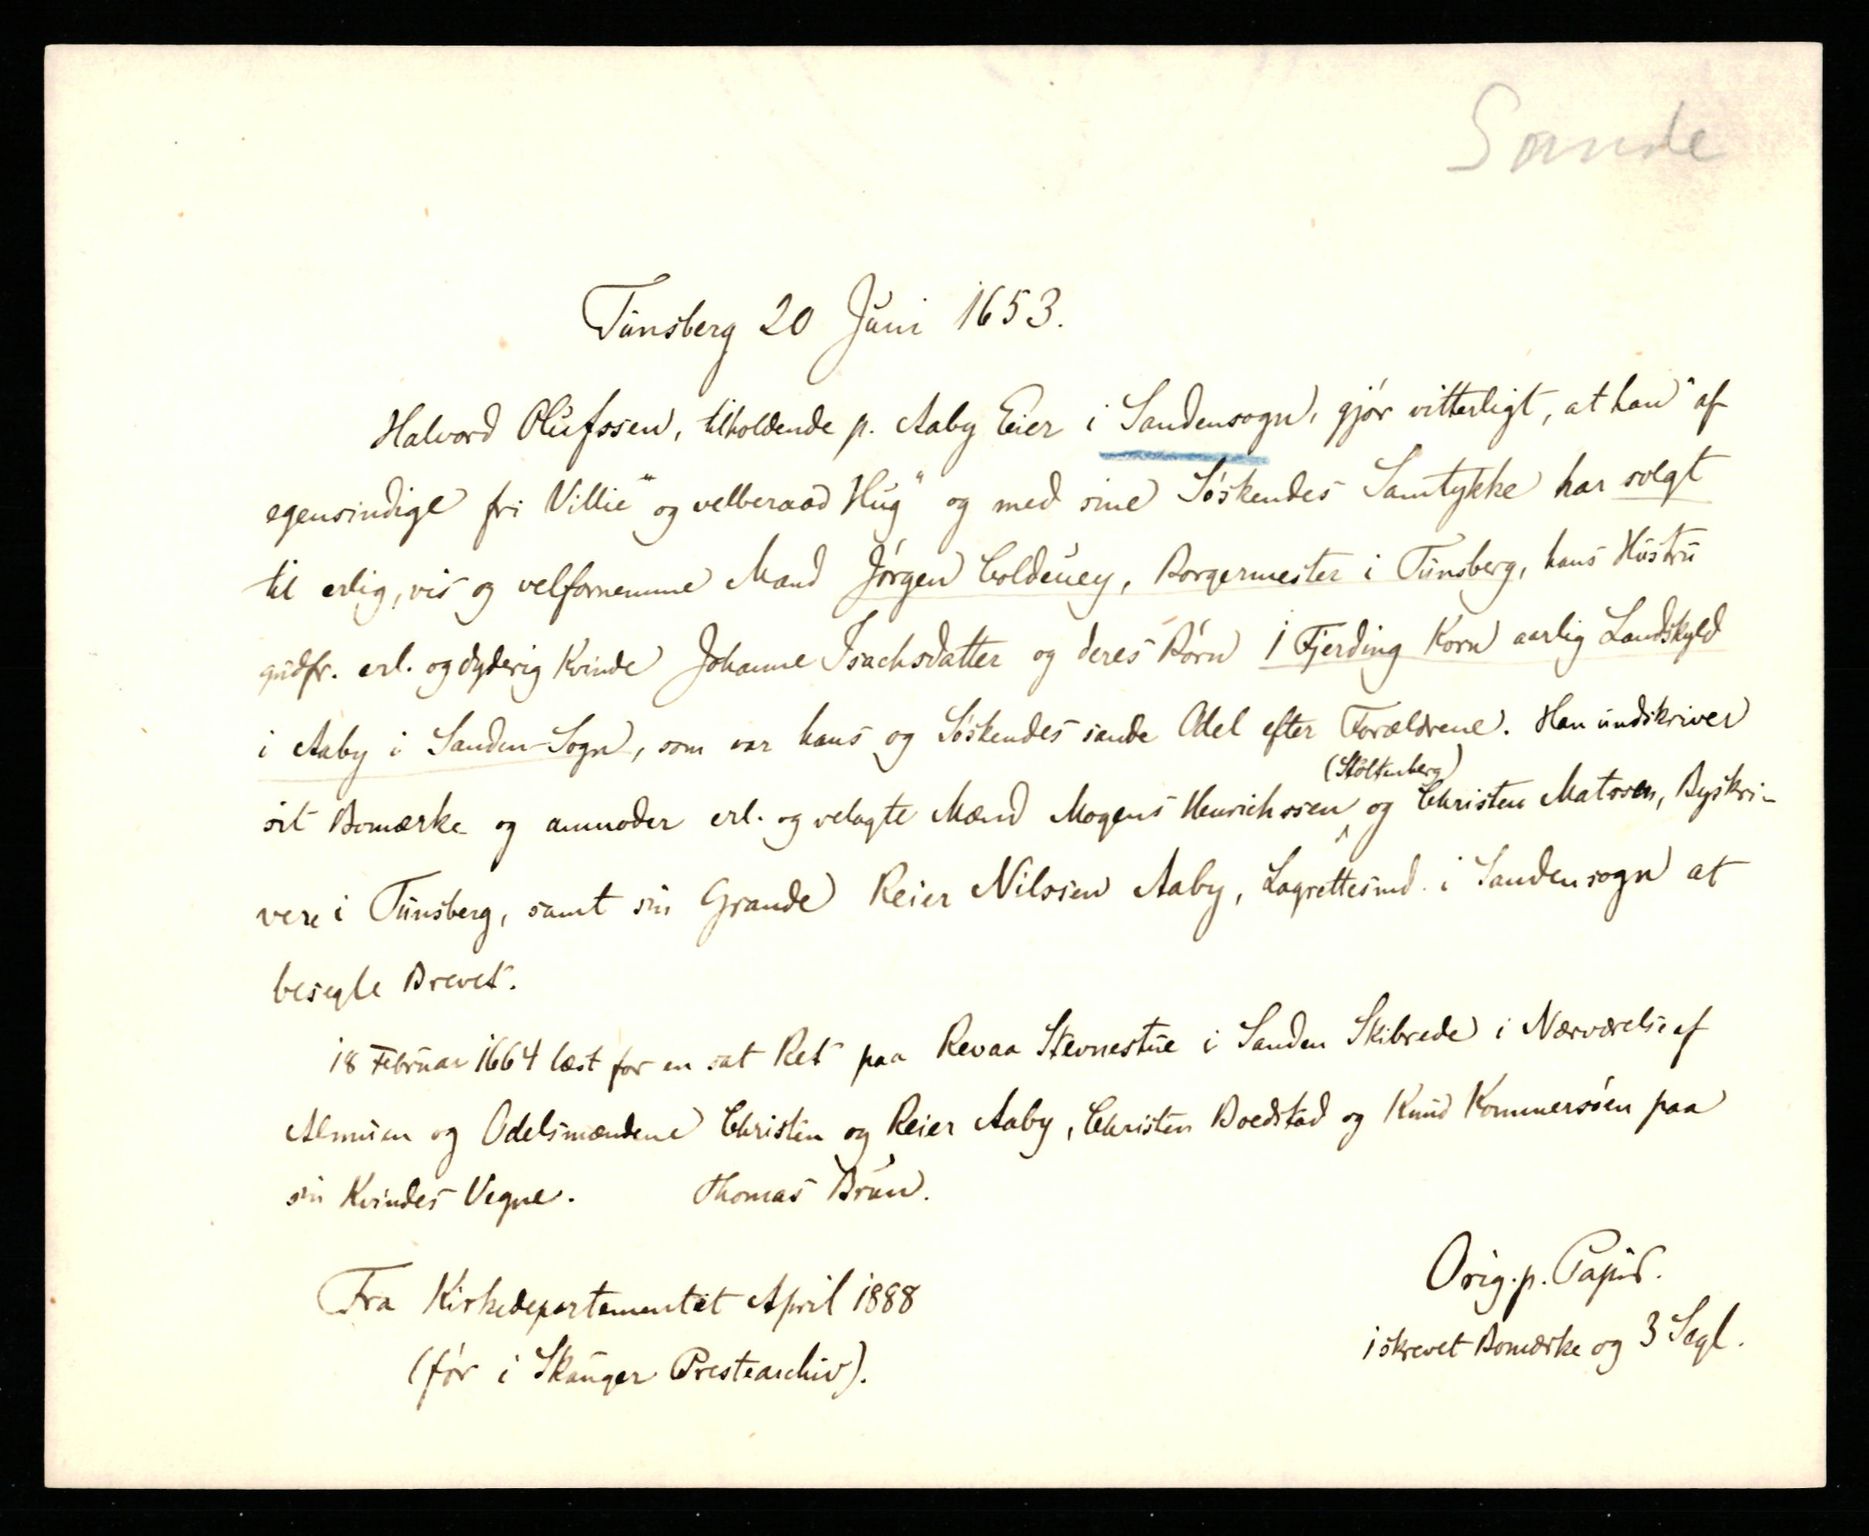 Sande
Tunsberg 20 Juni 1653.
Halvord Olufssen, tilholdende p. Aaby Eier i Sandensogn, gjør vitterligt, at han "af
egensindige fri Villie" og velberaad Hug" og med sine Søskendes Samtykke har solgt
til erlig, vis og velfornemme Mand Jørgen Coldeuey, Borgermester i Tunsberg, hans Hustru
gudfr. erl. og dyderig Kvinde Johanne Isachsdatter og deres Børn 1 Fjerding Korn aarlig Landskyld
i Aaby i Sanden-Sogn, som var hans og Søskendes sande Odel efter Forældrene. Han undskriver
(Stoltenberg)
sit Bomærke og anmoder erl. og velagte Mænd Mogens Henrichssen og Christen Matssen, Byskri-
vere i Tunsberg, samt sin Grande Reier Nilssen Aaby, Lagrettesmd. i Sandensogn at
besegle Brevet.
18 Februar 1664 læst for en sat Ret paa Revaa Stevnestue i Sanden Skibrede i Nærværelse af
Almuen og Odelsmændene Christen og Reier Aaby, Christen Boedstad og Knud Kommersøen paa
sin Kvindes Vegne. Thomas Brun.
Fra Kirkedepartementet April 1888
(før i Skauger Prestearchiv).
Orig. p. Papir.
1 skrevet Bomærke og 3 Segl.